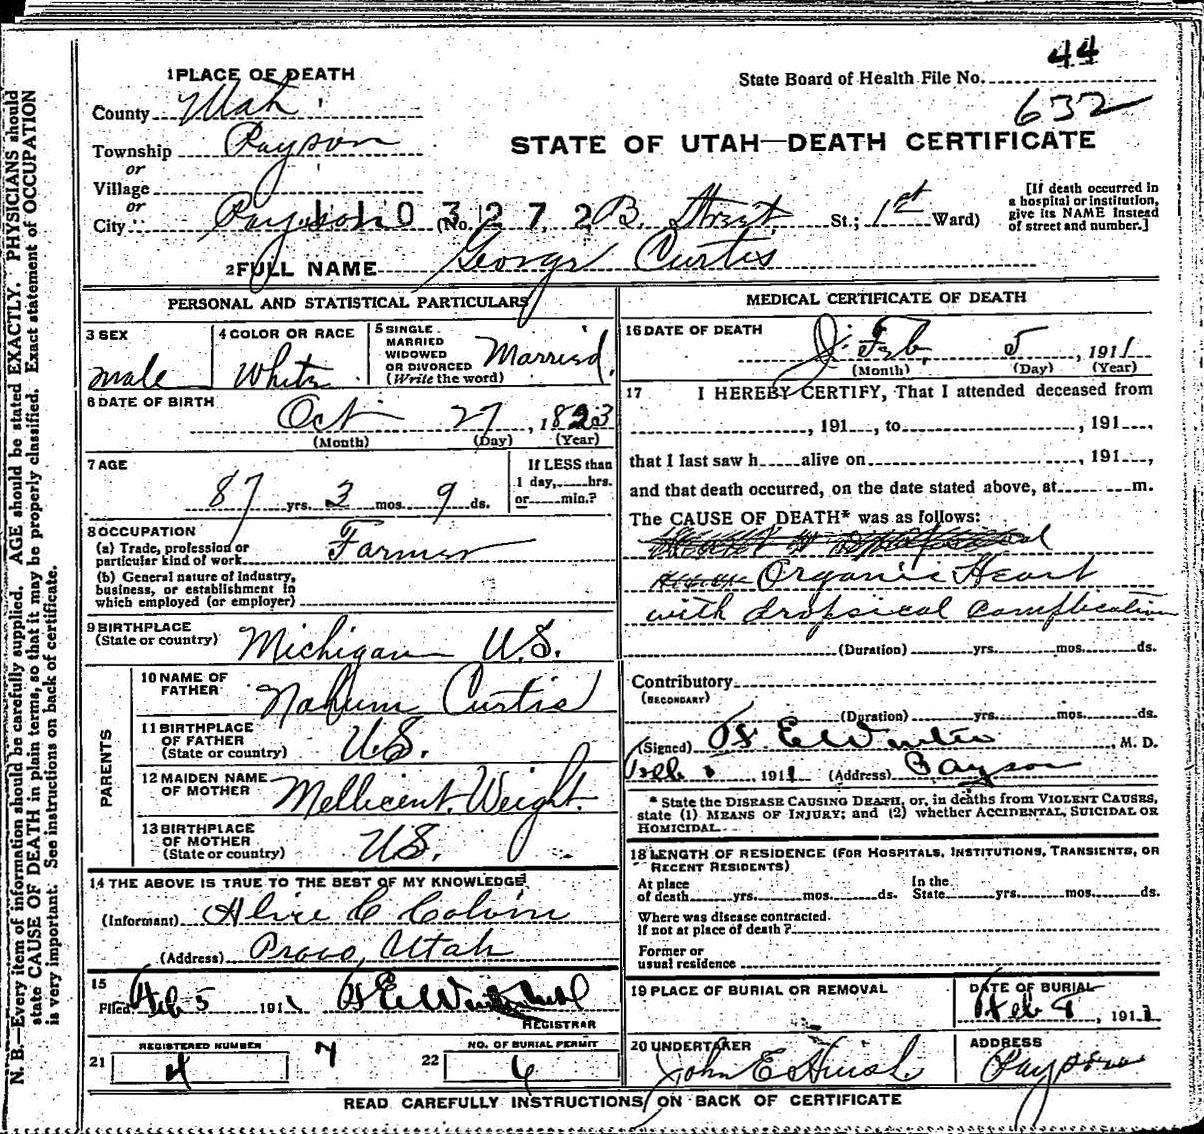 44
State Board of Health File No.
632
1 PLACE OF DEATH
County Utah
STATE OF UTAH—DEATH CERTIFICATE
Township Payson
or
Village
or
City Payson 1103272 (No. B. Street. St.; 1st Ward)
[If death occurred in
a hospital or institution,
give its NAME instead
of street and number.]
2 FULL NAME George Curtis
PERSONAL AND STATISTICAL PARTICULARS
3 SEX
male
4 COLOR OR RACE
White
5 SINGLE
MARRIED
WIDOWED
OR DIVORCED
(Write the word)
Married
6 DATE OF BIRTH
Oct 27, 1823
(Month) (Day) (Year)
7 AGE
87 yrs. 3 mos. 9 ds.
If LESS than
1 day,....hrs.
or....min.?
8 OCCUPATION
(a) Trade, profession or
particular kind of work Farmer
(b) General nature of industry,
business, or establishment in
which employed (or employer)
9 BIRTHPLACE
(State or country) Michigan U.S.
PARENTS
10 NAME OF
FATHER Nahum Curtis
11 BIRTHPLACE
OF FATHER
(State or country) U.S.
12 MAIDEN NAME
OF MOTHER Mellicent. Weight.
13 BIRTHPLACE
OF MOTHER
(State or country) U.S.
14 THE ABOVE IS TRUE TO THE BEST OF MY KNOWLEDGE
(Informant) Alice C Colvin
(Address) Provo, Utah
15
Filed Feb 5 1911
REGISTRAR
21 REGISTERED NUMBER
4
7
22 NO. OF BURIAL PERMIT
6
MEDICAL CERTIFICATE OF DEATH
16 DATE OF DEATH
Feb. 5, 1911
(Month) (Day) (Year)
17 I HEREBY CERTIFY, That I attended deceased from
, 191 , to , 191 ,
that I last saw h alive on , 191 ,
and that death occurred, on the date stated above, at m.
The CAUSE OF DEATH* was as follows:
Organic Heart
with dropsical complication
(Duration) yrs. mos. ds.
Contributory
(SECONDARY)
(Duration) yrs. mos. ds.
(Signed) , M. D.
Feb 1911 (Address) Payson
* State the DISEASE CAUSING DEATH, or, in deaths from VIOLENT CAUSES,
state (1) MEANS OF INJURY; and (2) whether ACCIDENTAL, SUICIDAL OR
HOMICIDAL.
18 LENGTH OF RESIDENCE (FOR HOSPITALS, INSTITUTIONS, TRANSIENTS, OR
RECENT RESIDENTS)
At place
of death yrs. mos. ds.
In the
State yrs. mos. ds.
Where was disease contracted.
if not at place of death?
Former or
usual residence
19 PLACE OF BURIAL OR REMOVAL
DATE OF BURIAL
Feb 8, 1911
20 UNDERTAKER
John E Huish
ADDRESS
Payson
READ CAREFULLY INSTRUCTIONS ON BACK OF CERTIFICATE
N. B.—Every item of information should be carefully supplied. AGE should be stated EXACTLY. PHYSICIANS should
state CAUSE OF DEATH in plain terms, so that it may be properly classified. Exact statement of OCCUPATION
is very important. See instructions on back of certificate.